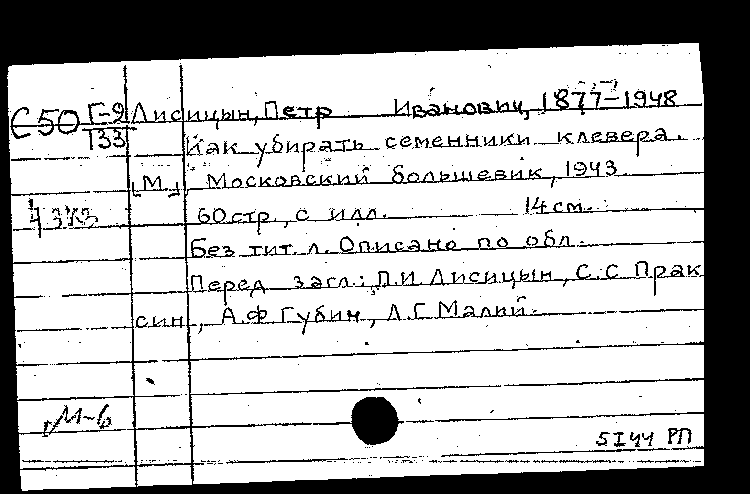 С50 Г-9 Лисицын, Петр Иванович, 1877-1948
133 Как убирать семенники клевера.
[М.], Московский большевик, 1943
60 стр., с илл. 14 см.
Без тит. л. Описано по обл.
Перед загл.: П.И. Лисицын, С.С Прак
син, А.Ф Губин, Л.Г. Малий.
М-6
5I44 РП